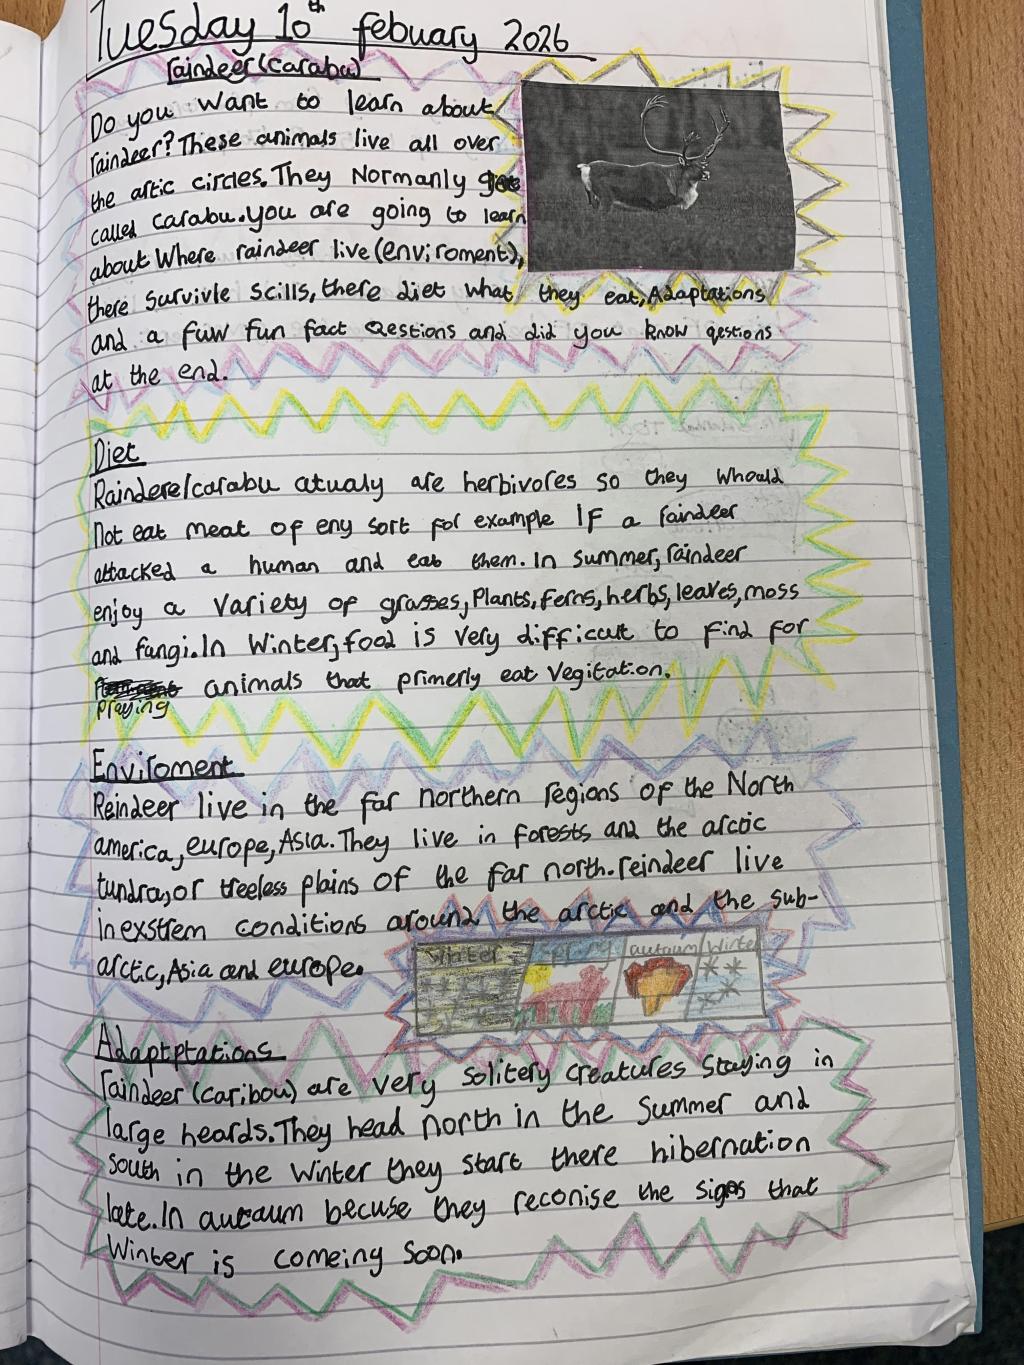 Tuesday 10th febuary 2026
raindeer(carabu)
Do you want to learn about
raindeer? These animals live all over
the artic circles. They Normanly
called carabu. you are going to learn
about Where raindeer live (enviroment),
there survivle scills, there diet what they eat, Adaptations
and a fuw fun fact Qestions and did you know qestions
at the end.
Diet
Raindere/carabu atualy are herbivores so they whould
Not eat meat of eny sort for example If a raindeer
attacked a human and eat them. In summer, raindeer
enjoy a variety of grasses, Plants, ferns, herbs, leaves, moss
and fungi. In Winter, food is very difficult to find for
animals that primerly eat vegitation.
praying
Enviroment
Reindeer live in the far northern regions of the North
america, europe, Asia. They live in forests and the arctic
tundra, or treeless plains of the far north. reindeer live
in exstrem conditions around the arctic and the sub-
arctic, Asia and europe.
Winter spring autaum Winter
Adaptptations
raindeer (caribou) are very solitery creatures staying in
large heards. They head north in the summer and
south in the winter they start there hibernation
late. In autaum becuse they reconise the signs that
Winter is comeing soon.